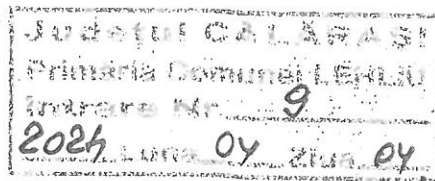 Județul CĂLĂRAȘI
Primăria Comunei LEHLIU
Intrare Nr. 9
2024 Luna 04 ziua 04